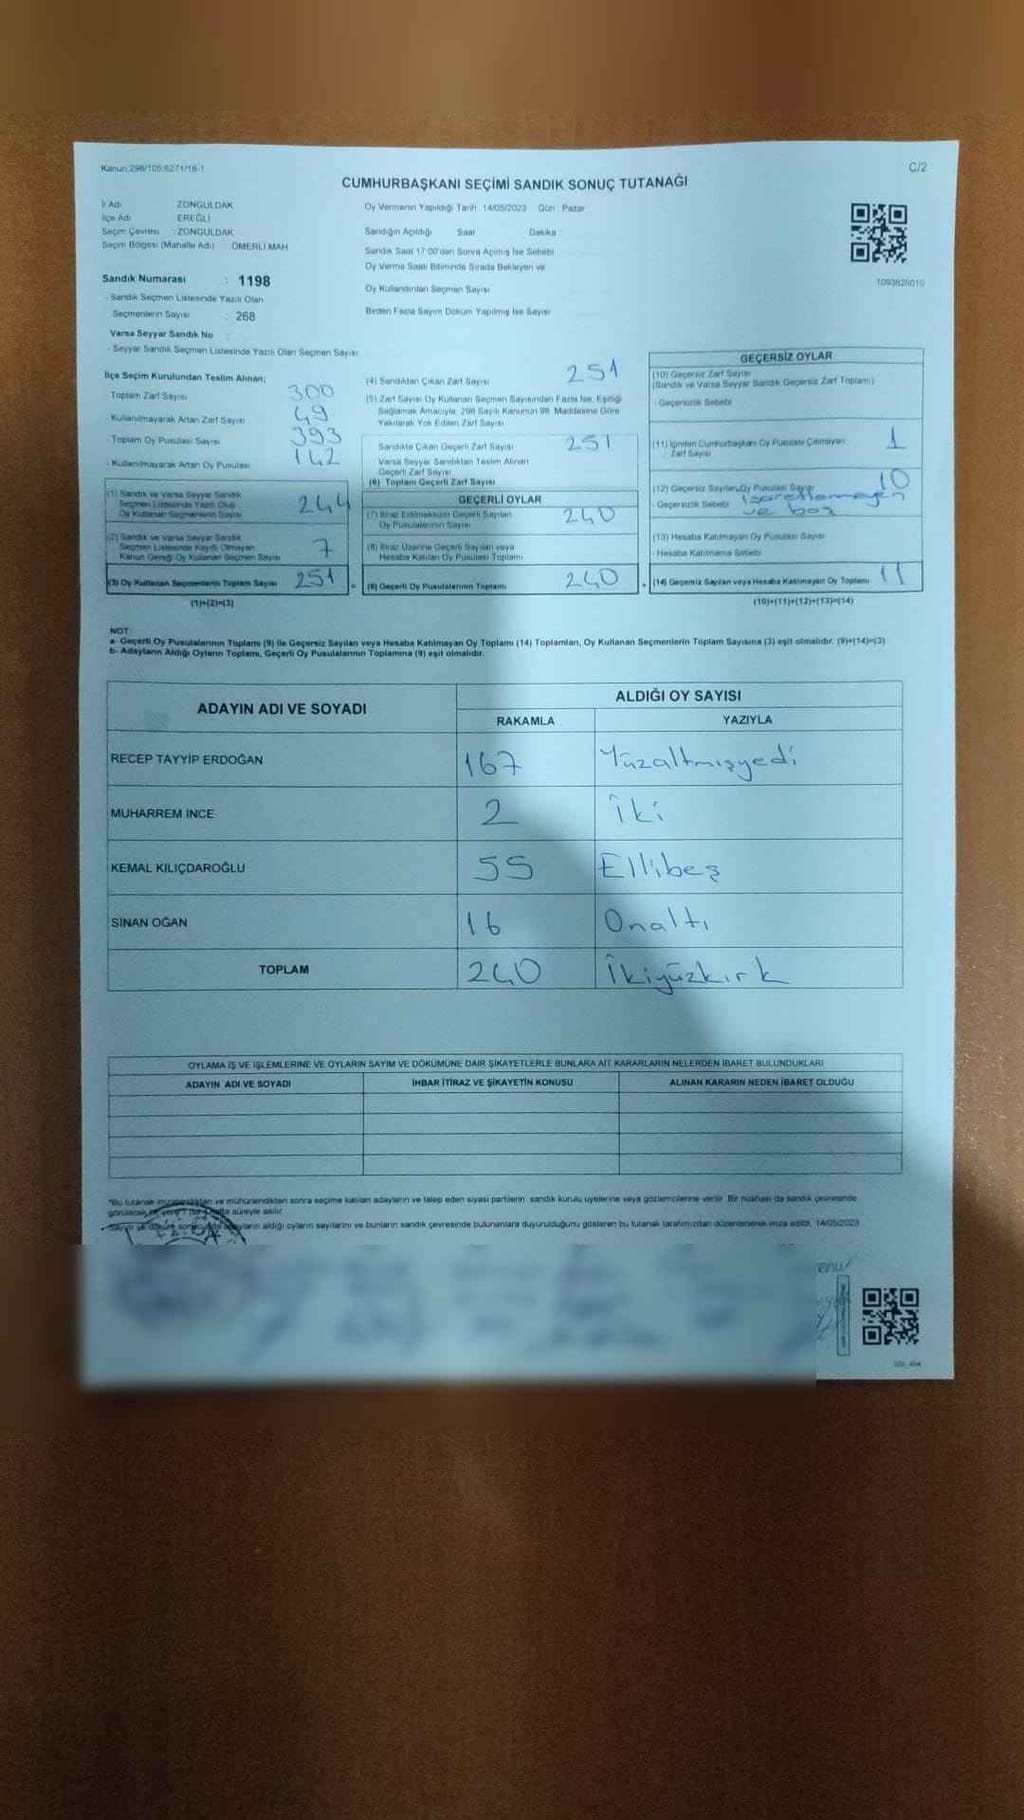 Kanun:298/105,6271/18-1
C/2
CUMHURBAŞKANI SEÇİMİ SANDIK SONUÇ TUTANAĞI
İl Adı ZONGULDAK
İlçe Adı EREĞLİ
Seçim Çevresi : ZONGULDAK
Seçim Bölgesi (Mahalle Adı) ÖMERLİ MAH
Sandık Numarası : 1198
- Sandık Seçmen Listesinde Yazılı Olan
Seçmenlerin Sayısı : 268
Varsa Seyyar Sandık No
- Seyyar Sandık Seçmen Listesinde Yazılı Olan Seçmen Sayısı
Oy Vermenin Yapıldığı Tarih 14/05/2023 Gün Pazar
Sandığın Açıldığı Saat Dakika
Sandık Saat 17:00'dan Sonra Açılmış İse Sebebi
Oy Verme Saati Bitiminde Sırada Bekleyen ve
Oy Kullandırılan Seçmen Sayısı
Birden Fazla Sayım Döküm Yapılmış İse Sayısı
1093826010
İlçe Seçim Kurulundan Teslim Alınan;
Toplam Zarf Sayısı 300
- Kullanılmayarak Artan Zarf Sayısı 49
- Toplam Oy Pusulası Sayısı 393
- Kullanılmayarak Artan Oy Pusulası 142
(1) Sandık ve Varsa Seyyar Sandık
Seçmen Listesinde Yazılı Olup
Oy Kullanan Seçmenlerin Sayısı 244
(2) Sandık ve Varsa Seyyar Sandık
Seçmen Listesinde Kayıtlı Olmayan
Kanun Gereği Oy Kullanan Seçmen Sayısı 7
(3) Oy Kullanan Seçmenlerin Toplam Sayısı 251
(1)+(2)=(3)
(4) Sandıktan Çıkan Zarf Sayısı 251
(5) Zarf Sayısı Oy Kullanan Seçmen Sayısından Fazla İse, Eşitliği
Sağlamak Amacıyla; 298 Sayılı Kanunun 98. Maddesine Göre
Yakılarak Yok Edilen Zarf Sayısı
Sandıkta Çıkan Geçerli Zarf Sayısı 251
Varsa Seyyar Sandıktan Teslim Alınan
Geçerli Zarf Sayısı
(6) Toplam Geçerli Zarf Sayısı
GEÇERLİ OYLAR
(7) İtiraz Edilmeksizin Geçerli Sayılan
Oy Pusulalarının Sayısı 240
(8) İtiraz Üzerine Geçerli Sayılan veya
Hesaba Katılan Oy Pusulası Toplamı
(9) Geçerli Oy Pusulalarının Toplamı 240
GEÇERSİZ OYLAR
(10) Geçersiz Zarf Sayısı
(Sandık ve Varsa Seyyar Sandık Geçersiz Zarf Toplamı)
- Geçersizlik Sebebi
(11) İçinden Cumhurbaşkanı Oy Pusulası Çıkmayan
Zarf Sayısı 1
(12) Geçersiz Sayılan Oy Pusulası Sayısı 10
- Geçersizlik Sebebi işaretlemeyen
ve boş
(13) Hesaba Katılmayan Oy Pusulası Sayısı
- Hesaba Katılmama Sebebi
(14) Geçersiz Sayılan veya Hesaba Katılmayan Oy Toplamı 11
(10)+(11)+(12)+(13)=(14)
NOT:
a- Geçerli Oy Pusulalarının Toplamı (9) ile Geçersiz Sayılan veya Hesaba Katılmayan Oy Toplamı (14) Toplamları, Oy Kullanan Seçmenlerin Toplam Sayısına (3) eşit olmalıdır. (9)+(14)=(3)
b- Adayların Aldığı Oyların Toplamı, Geçerli Oy Pusulalarının Toplamına (9) eşit olmalıdır.
ADAYIN ADI VE SOYADI ALDIĞI OY SAYISI
RAKAMLA YAZIYLA
RECEP TAYYİP ERDOĞAN 167 Yüzaltmışyedi
MUHARREM İNCE 2 İki
KEMAL KILIÇDAROĞLU 55 Ellibeş
SİNAN OĞAN 16 Onaltı
TOPLAM 240 İkiyüzkırk
OYLAMA İŞ VE İŞLEMLERİNE VE OYLARIN SAYIM VE DÖKÜMÜNE DAİR ŞİKAYETLERLE BUNLARA AİT KARARLARIN NELERDEN İBARET BULUNDUKLARI
ADAYIN ADI VE SOYADI İHBAR İTİRAZ VE ŞİKAYETİN KONUSU ALINAN KARARIN NEDEN İBARET OLDUĞU
*Bu tutanak imzalandıktan ve mühürlendikten sonra seçime katılan adayların ve talep eden siyasi partilerin sandık kurulu üyelerine veya gözlemcilerine verilir. Bir nüshası da sandık çevresinde
süreyle asılır
adayların aldığı oyların sayılarını ve bunların sandık çevresinde bulunanlara duyurulduğunu gösteren bu tutanak tarafımızdan düzenlenerek imza edildi. 14/05/2023